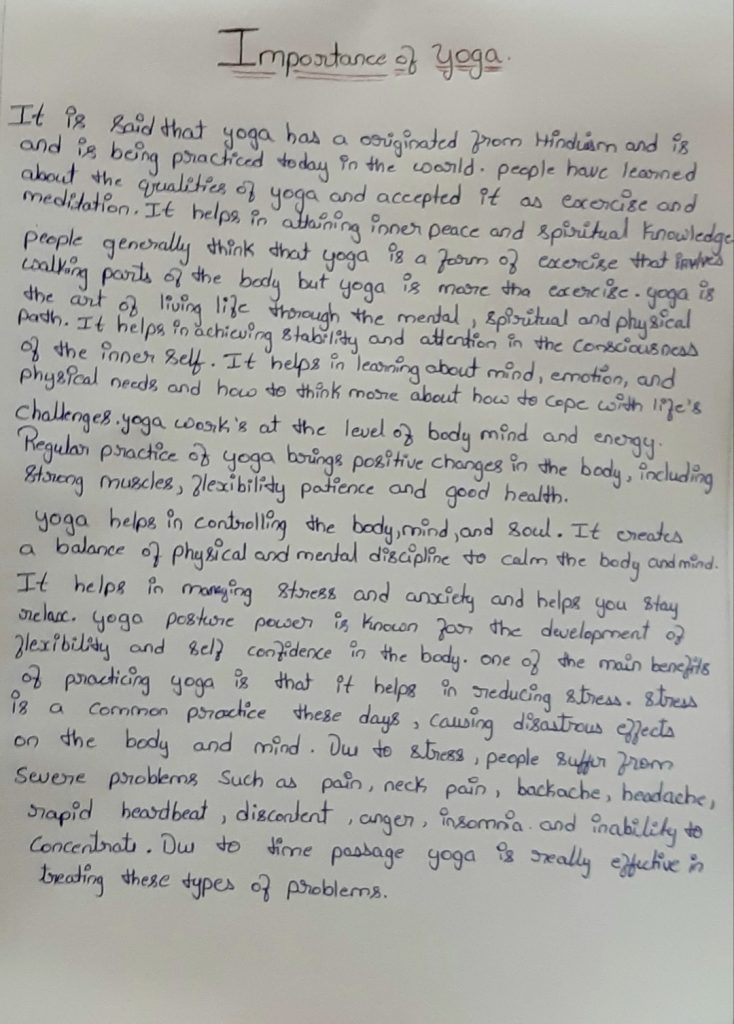 Importance of yoga.
It is said that yoga has a originated from Hinduism and is
and is being practiced today in the world. people have learned
about the qualities of yoga and accepted it as exercise and
meditation. It helps in attaining inner peace and spiritual knowledge
people generally think that yoga is a form of exercise that involves
walking parts of the body but yoga is more tha exercise. yoga is
the art of living life through the mental, spiritual and physical
path. It helps in achieving stability and attention in the consciousness
of the inner self. It helps in learning about mind, emotion, and
physical needs and how to think more about how to cope with life's
challenges. yoga work's at the level of body mind and energy.
Regular practice of yoga brings positive changes in the body, including
strong muscles, flexibility patience and good health.
yoga helps in controlling the body, mind, and soul. It creates
a balance of physical and mental discipline to calm the body and mind.
It helps in managing stress and anxiety and helps you stay
relax. yoga posture power is known for the development of
flexibility and self confidence in the body. one of the main benefits
of practicing yoga is that it helps in reducing stress. stress
is a common practice these days, causing disastrous effects
on the body and mind. Due to stress, people suffer from
severe problems such as pain, neck pain, backache, headache,
rapid heardbeat, discontent, anger, insomnia and inability to
concentrate. Due to time passage yoga is really effective in
treating these types of problems.